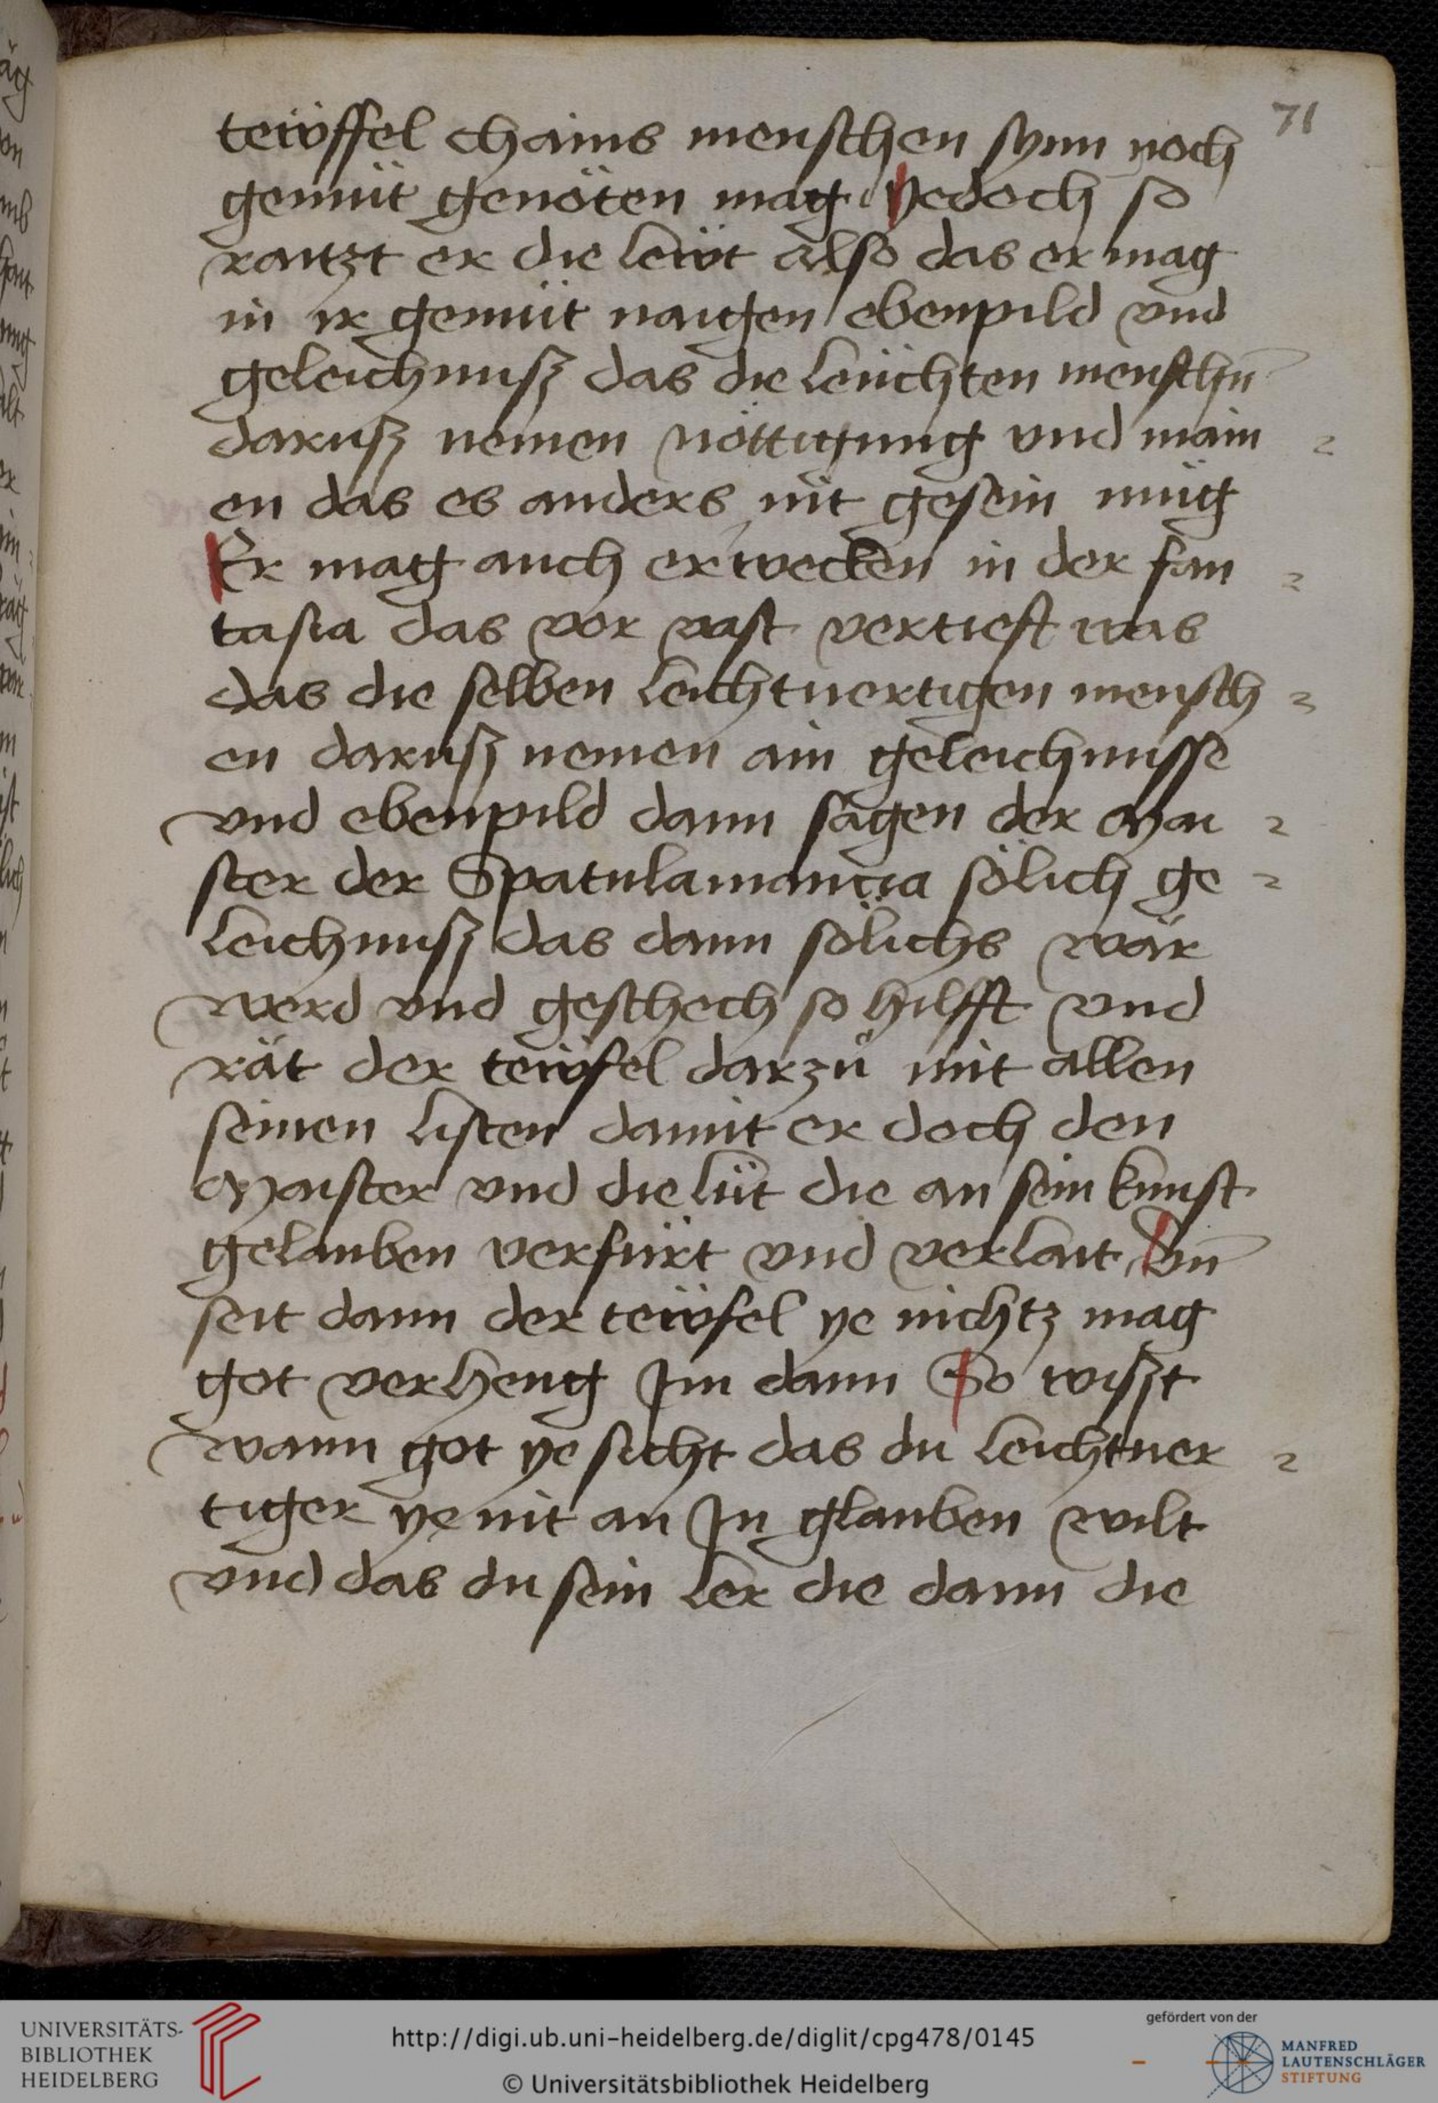 71
tewͤffel chains menschen synn noch
gemüt genöten mag Yedoch so
raitzt er die lewt also das er mag
in ir gemüt naigen ebenpild vnd
geleichnusz das die leüchten menschn̄
darusz nemen nöttigung vnd main
en das es anders nit gesein müg
Er mag auch erwecken in der fan
tasia das vor vast vertieft was
das die selben leichtuertigen mensch
en darusz nemen ain geleichnusse
vnd ebenpild dann sagen der Mai
ster der Spatulamancia sölich ge
leichnusz das dann sölichs wär
werd vnd geschech so hilfft vnd
rät der tewfel darzů mit allen
seinen listen damit er doch den
Maister vnd die lüt die an sein kunst
gelauben verfürt vnd verlait Vn̄
seit dann der tewfel ye nichtz mag
got verheng Im dann So wiszt
wann got ye sicht das du leichtuer
tiger ye nit an In glauben wilt
vnd das du sein ler die dann die
UNIVERSITÄTS-
BIBLIOTHEK
HEIDELBERG
http://digi.ub.uni-heidelberg.de/diglit/cpg478/0145
© Universitätsbibliothek Heidelberg
gefördert von der
MANFRED
LAUTENSCHLÄGER
STIFTUNG